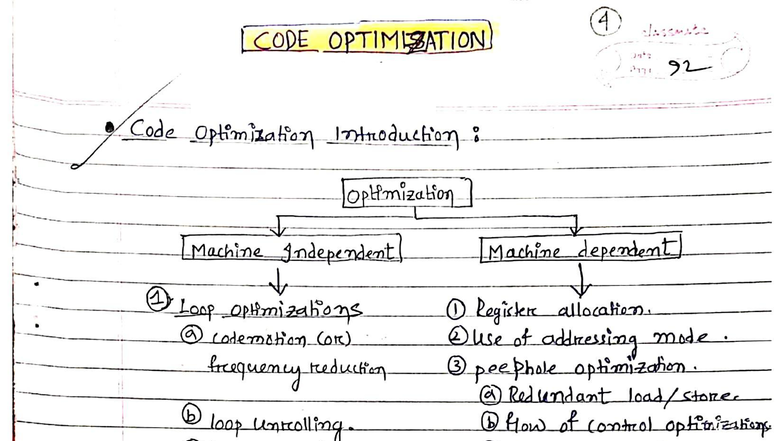 CODE OPTIMIZATION
4
classmate
92
• Code Optimization Introduction :
Optimization
Machine Independent
Machine dependent
① Loop optimizations
ⓐ codemotion (or)
frequency reduction
ⓑ loop unrolling.
① Register allocation.
② Use of addressing mode.
③ peephole optimization.
ⓐ Redundant load/store.
ⓑ flow of control optimizations.